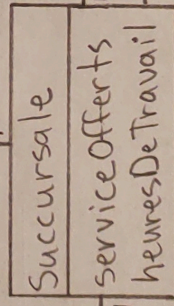 Succursale
serviceOfferts
heuresDeTravail